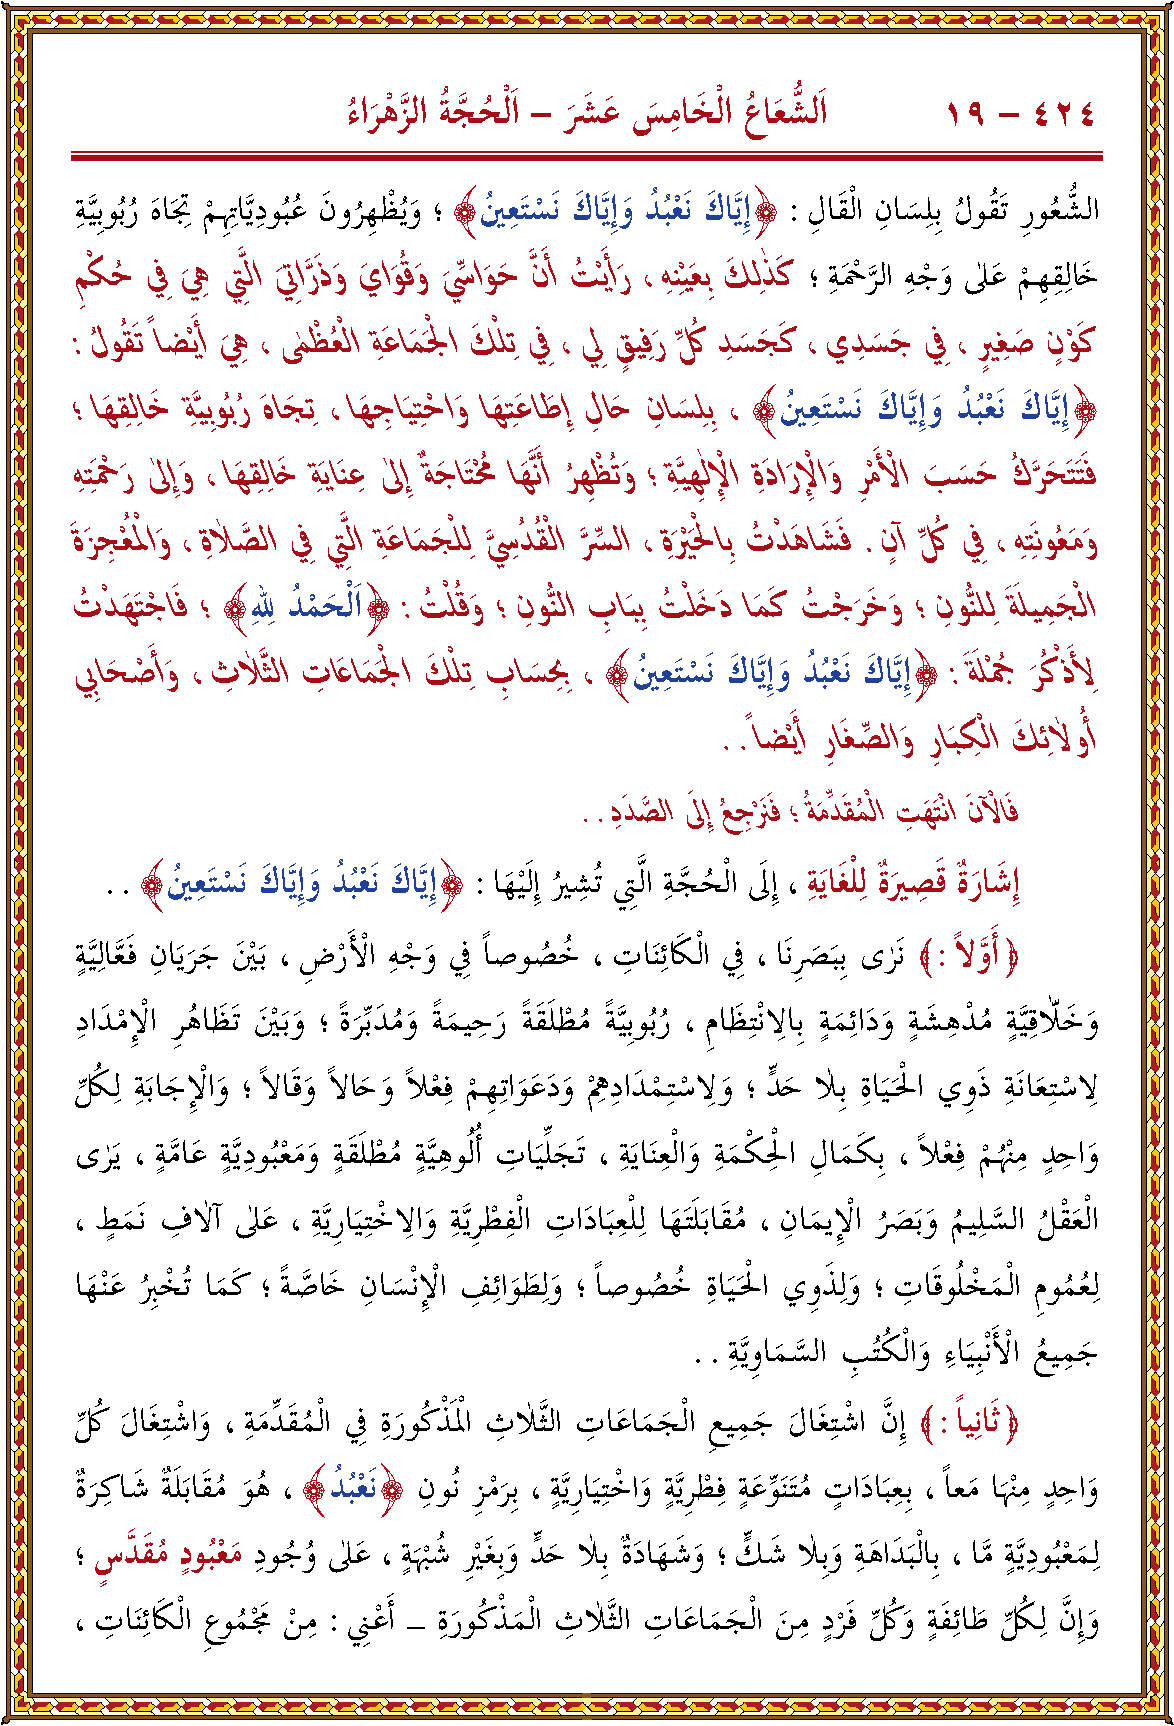 ٤٢٤ – ١٩ اَلشُّعَاعُ الْخَامِسَ عَشَرَ – اَلْحُجَّةُ الزَّهْرَاءُ
الشُّعُورِ تَقُولُ بِلِسَانِ الْقَالِ : ﴿إِيَّاكَ نَعْبُدُ وَإِيَّاكَ نَسْتَعِينُ﴾ ؛ وَيُظْهِرُونَ عُبُودِيَّاتِهِمْ تِجَاهَ رُبُوبِيَّةِ
خَالِقِهِمْ عَلىٰ وَجْهِ الرَّحْمَةِ ؛ كَذٰلِكَ بِعَيْنِهِ ، رَأَيْتُ أَنَّ حَوَاسِّيَ وَقُوَايَ وَذَرَّاتِيَ الَّتِي هِيَ فِي حُكْمِ
كَوْنٍ صَغِيرٍ ، فِي جَسَدِي ، كَجَسَدِ كُلِّ رَفِيقٍ لِي ، فِي تِلْكَ الْجَمَاعَةِ الْعُظْمٰى ، هِيَ أَيْضاً تَقُولُ :
﴿إِيَّاكَ نَعْبُدُ وَإِيَّاكَ نَسْتَعِينُ﴾ ، بِلِسَانِ حَالِ إِطَاعَتِهَا وَاحْتِيَاجِهَا ، تِجَاهَ رُبُوبِيَّةِ خَالِقِهَا ؛
فَتَتَحَرَّكُ حَسَبَ الْأَمْرِ وَالْإِرَادَةِ الْإِلٰهِيَّةِ ؛ وَتُظْهِرُ أَنَّهَا مُحْتَاجَةٌ إِلىٰ عِنَايَةِ خَالِقِهَا ، وَإِلىٰ رَحْمَتِهِ
وَمَعُونَتِهِ ، فِي كُلِّ آنٍ . فَشَاهَدْتُ بِالْحَيْرَةِ ، السِّرَّ الْقُدُسِيَّ لِلْجَمَاعَةِ الَّتِي فِي الصَّلَاةِ ، وَالْمُعْجِزَةَ
الْجَمِيلَةَ لِلنُّونِ ؛ وَخَرَجْتُ كَمَا دَخَلْتُ بِبَابِ النُّونِ ؛ وَقُلْتُ : ﴿اَلْحَمْدُ لِلّٰهِ﴾ ؛ فَاجْتَهَدْتُ
لِأَذْكُرَ جُمْلَةَ : ﴿إِيَّاكَ نَعْبُدُ وَإِيَّاكَ نَسْتَعِينُ﴾ ، بِحِسَابِ تِلْكَ الْجَمَاعَاتِ الثَّلَاثِ ، وَأَصْحَابِي
أُولَائِكَ الْكِبَارِ وَالصِّغَارِ أَيْضاً . .
فَالْآنَ انْتَهَتِ الْمُقَدِّمَةُ ؛ فَنَرْجِعُ إِلَى الصَّدَدِ . .
إِشَارَةٌ قَصِيرَةٌ لِلْغَايَةِ ، إِلَى الْحُجَّةِ الَّتِي تُشِيرُ إِلَيْهَا : ﴿إِيَّاكَ نَعْبُدُ وَإِيَّاكَ نَسْتَعِينُ﴾ . .
﴿ أَوَّلاً : ﴾ نَرٰى بِبَصَرِنَا ، فِي الْكَائِنَاتِ ، خُصُوصاً فِي وَجْهِ الْأَرْضِ ، بَيْنَ جَرَيَانِ فَعَّالِيَّةٍ
وَخَلَّاقِيَّةٍ مُدْهِشَةٍ وَدَائِمَةٍ بِالْاِنْتِظَامِ ، رُبُوبِيَّةً مُطْلَقَةً رَحِيمَةً وَمُدَبِّرَةً ؛ وَبَيْنَ تَظَاهُرِ الْإِمْدَادِ
لِاسْتِعَانَةِ ذَوِي الْحَيَاةِ بِلَا حَدٍّ ؛ وَلِاسْتِمْدَادِهِمْ وَدَعَوَاتِهِمْ فِعْلاً وَحَالاً وَقَالاً ؛ وَالْإِجَابَةِ لِكُلِّ
وَاحِدٍ مِنْهُمْ فِعْلاً ، بِكَمَالِ الْحِكْمَةِ وَالْعِنَايَةِ ، تَجَلِّيَاتِ أُلُوهِيَّةٍ مُطْلَقَةٍ وَمَعْبُودِيَّةٍ عَامَّةٍ ، يَرٰى
الْعَقْلُ السَّلِيمُ وَبَصَرُ الْإِيمَانِ ، مُقَابَلَتَهَا لِلْعِبَادَاتِ الْفِطْرِيَّةِ وَالِاخْتِيَارِيَّةِ ، عَلىٰ آلَافِ نَمَطٍ ،
لِعُمُومِ الْمَخْلُوقَاتِ ؛ وَلِذَوِي الْحَيَاةِ خُصُوصاً ؛ وَلِطَوَائِفِ الْإِنْسَانِ خَاصَّةً ؛ كَمَا تُخْبِرُ عَنْهَا
جَمِيعُ الْأَنْبِيَاءِ وَالْكُتُبِ السَّمَاوِيَّةِ . .
﴿ ثَانِياً : ﴾ إِنَّ اشْتِغَالَ جَمِيعِ الْجَمَاعَاتِ الثَّلَاثِ الْمَذْكُورَةِ فِي الْمُقَدِّمَةِ ، وَاشْتِغَالَ كُلِّ
وَاحِدٍ مِنْهَا مَعاً ، بِعِبَادَاتٍ مُتَنَوِّعَةٍ فِطْرِيَّةٍ وَاخْتِيَارِيَّةٍ ، بِرَمْزِ نُونِ ﴿نَعْبُدُ﴾ ، هُوَ مُقَابَلَةٌ شَاكِرَةٌ
لِمَعْبُودِيَّةٍ مَّا ، بِالْبَدَاهَةِ وَبِلَا شَكٍّ ؛ وَشَهَادَةٌ بِلَا حَدٍّ وَبِغَيْرِ شُبْهَةٍ ، عَلىٰ وُجُودِ مَعْبُودٍ مُقَدَّسٍ ؛
وَإِنَّ لِكُلِّ طَائِفَةٍ وَكُلِّ فَرْدٍ مِنَ الْجَمَاعَاتِ الثَّلَاثِ الْمَذْكُورَةِ – أَعْنِي : مِنْ مَجْمُوعِ الْكَائِنَاتِ ،